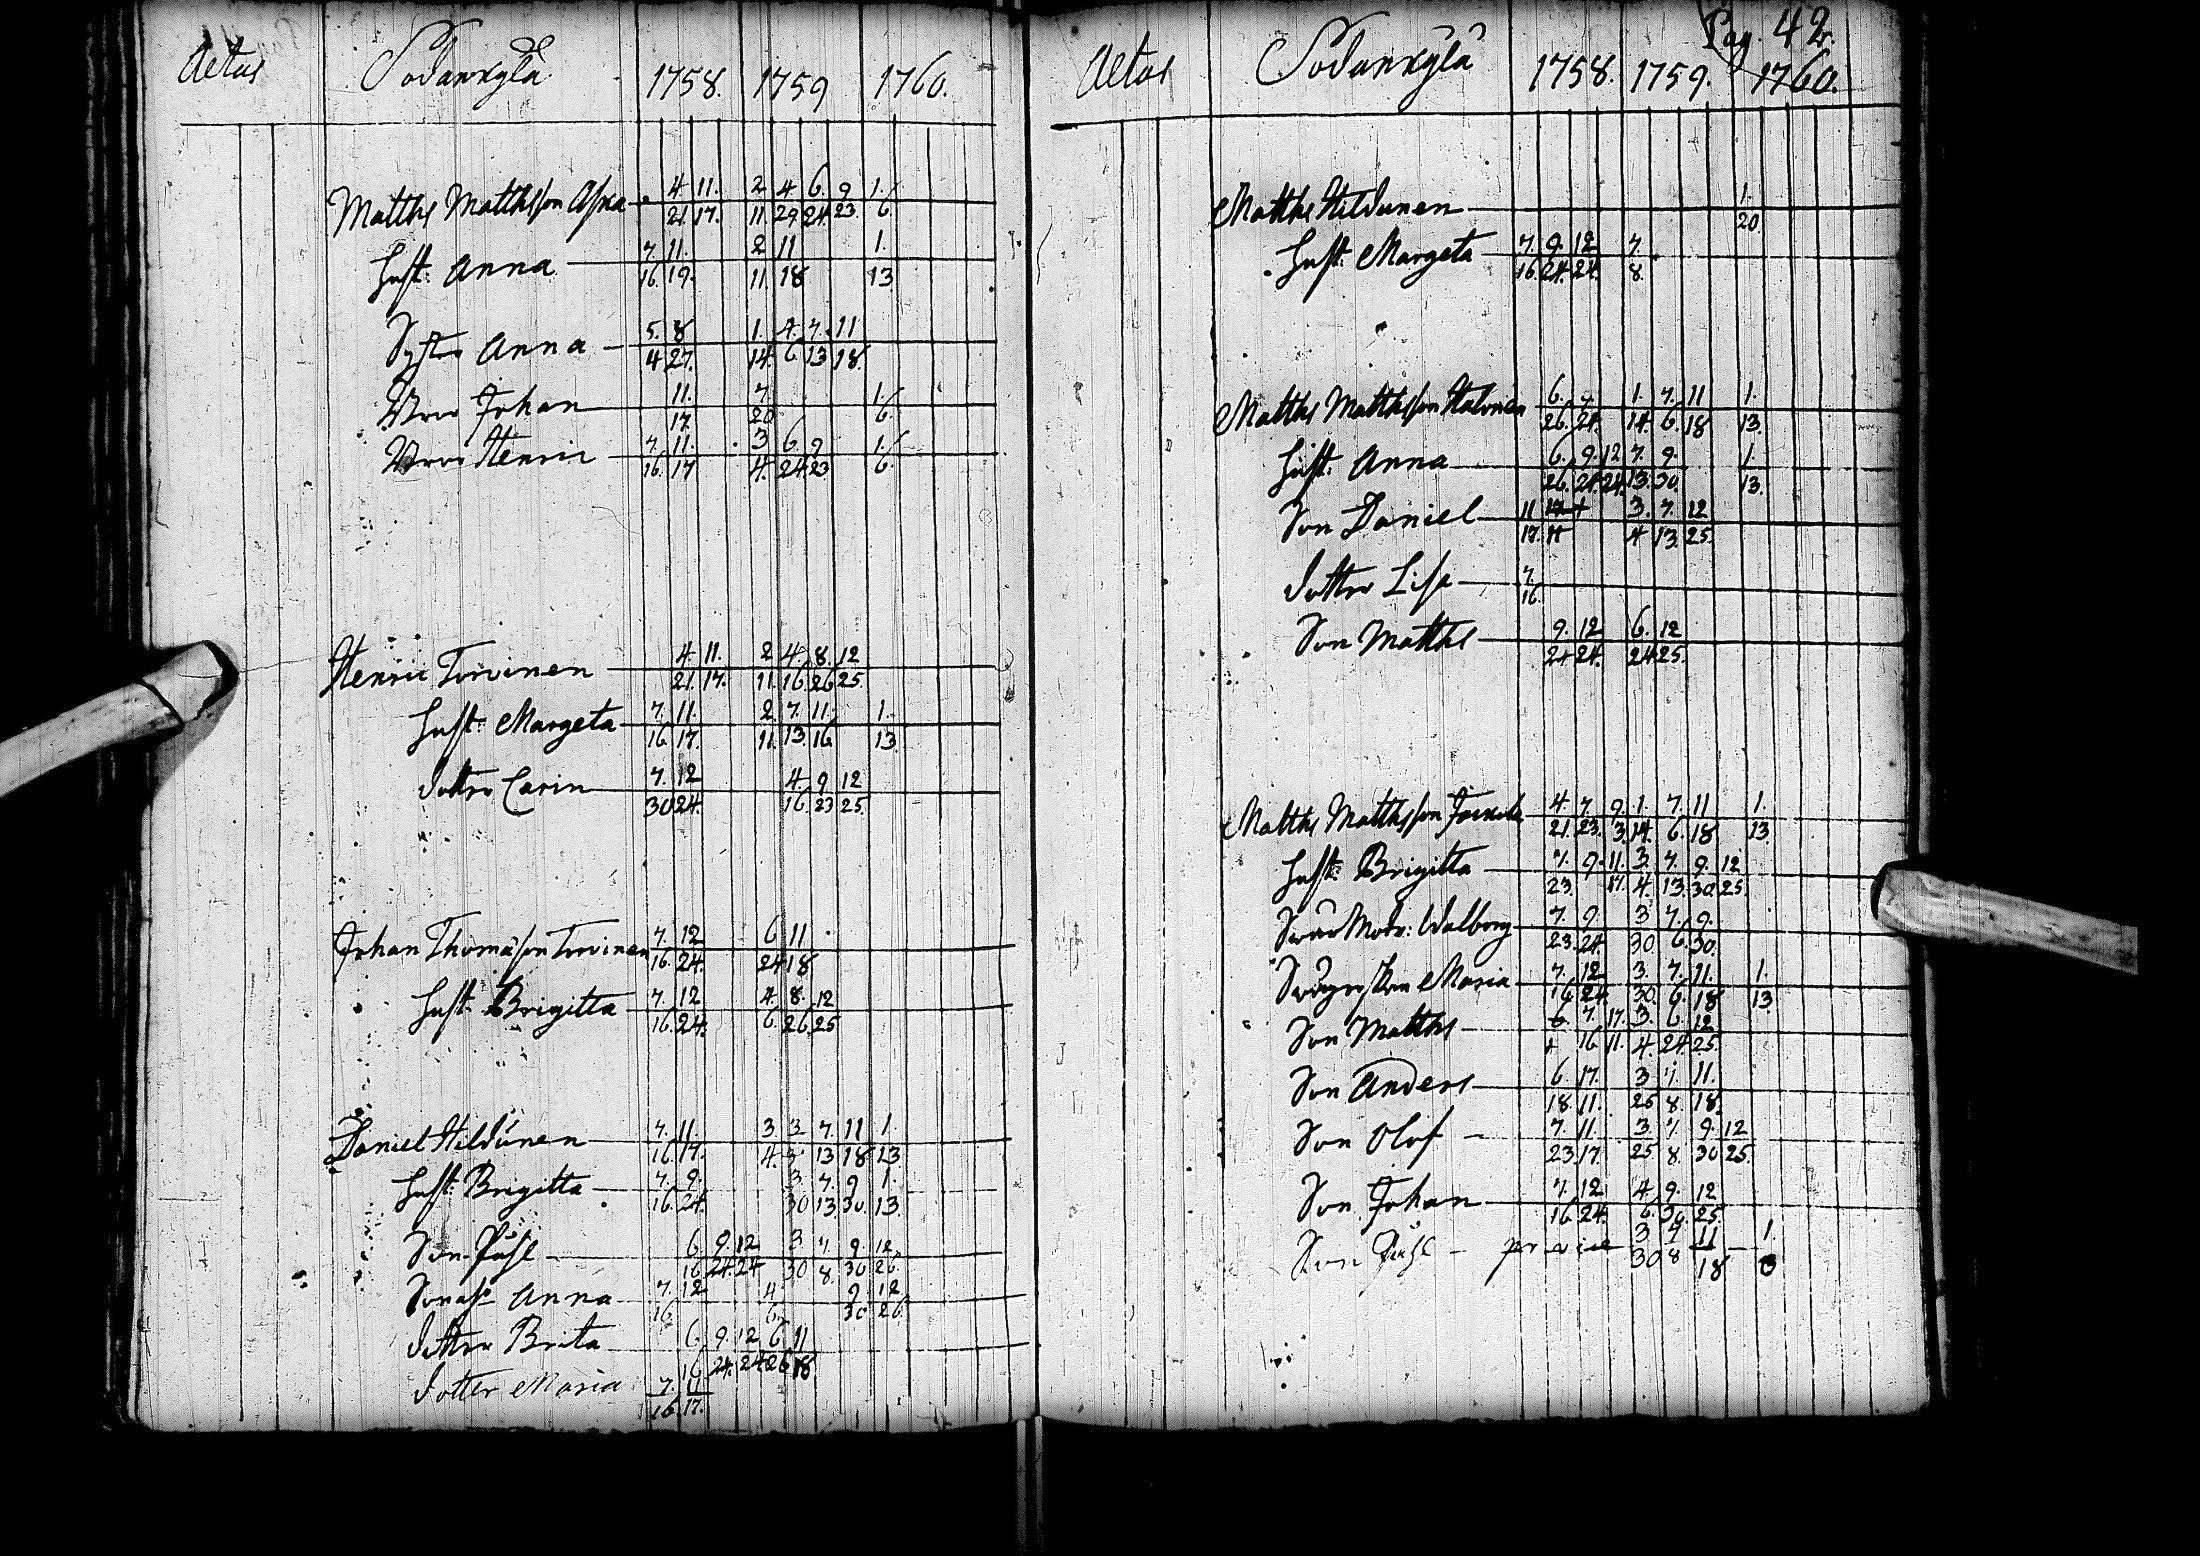 Aetas Sodankylä 1758. 1759 1760.
Matths Matthsson 4 11. 2 4 6. 9 1.
21. 17. 11. 29 24. 23. 6.
Hust: Anna 7. 11. 2 11 1.
16. 19. 11. 18 13
Syster Anna 5. 8 1. 4. 7. 11
4 27. 14. 6 13 18.
Bror Johan 11. 7. 1.
17. 20 6.
Bror Henric 7. 11. 3 6. 9 1.
16. 17 4. 24. 23 6
Henric Torvinen 4. 11. 2 4. 8. 12
21. 17. 11. 16 26 25.
Hust: Margeta 7. 11. 2. 7. 11. 1.
16 17. 11. 13. 16 13.
Dotter Carin 7. 12 4. 9 12
30 24. 16 23 25.
Johan Thomasson Torvinen 7. 12 6 11
16. 24. 24 18
Hust: Brigitta 7. 12 4. 8. 12
16. 24. 6. 26. 25
Daniel Hildunen 7. 11. 3 3. 7. 11 1.
16. 17. 4. 13 18 13
Hust: Brigitta 7. 9. 3. 7. 9 1.
16. 24. 30 13. 30. 13.
Son Påhl 6. 9. 12 3 7. 9 12.
16 24. 24 30 8. 30 26.
Anna 7. 12 4 9 12
16. 6. 30 26.
Dotter Brita 6. 9. 12 6. 11
16 24. 24 26 18.
Dotter Maria 7. 11
16. 17.
Pag. 42.
Aetas Sodankylä 1758. 1759. 1760.
Matths Hildunen 1.
20.
Hust: Margeta 7. 9. 12 7.
16. 24. 24. 8.
Matths Matthsson Halonen 6. 7. 1. 7. 11 1.
26. 24. 14. 6. 18 13.
Hust: Anna 6. 9. 12 7. 9. 1.
26. 24. 24. 13. 30. 13.
Son Daniel 11 3. 7. 12
17. 4 13. 25.
Dotter Lisa 7.
16.
Son Matths 9. 12 6. 12
24 24. 24 25.
Matths Matthsson 4. 7. 9. 1. 7. 11 1.
21. 23. 3. 14. 6. 18 13.
Hust: Brigitta 7. 9. 11. 3. 7. 9. 12
23. 17. 4. 13. 30. 25
Walborg 7. 9. 3 7. 9.
23. 24. 30 6. 30.
Maria 7. 12 3. 7. 11. 1.
16 24. 30. 6. 18 13.
Son Matths 6 7. 17. 3. 6. 12
16 11. 4. 24. 25.
Son Anders 6 17. 3 7. 11.
18. 11. 25 8. 18.
Son Olof 7. 11. 3. 7. 9. 12
23. 17. 25 8. 30 25.
Son Johan 7. 12 4. 9. 12
16 24. 6. 30 25.
Son Påhl 3 7 11 1.
30 8 18